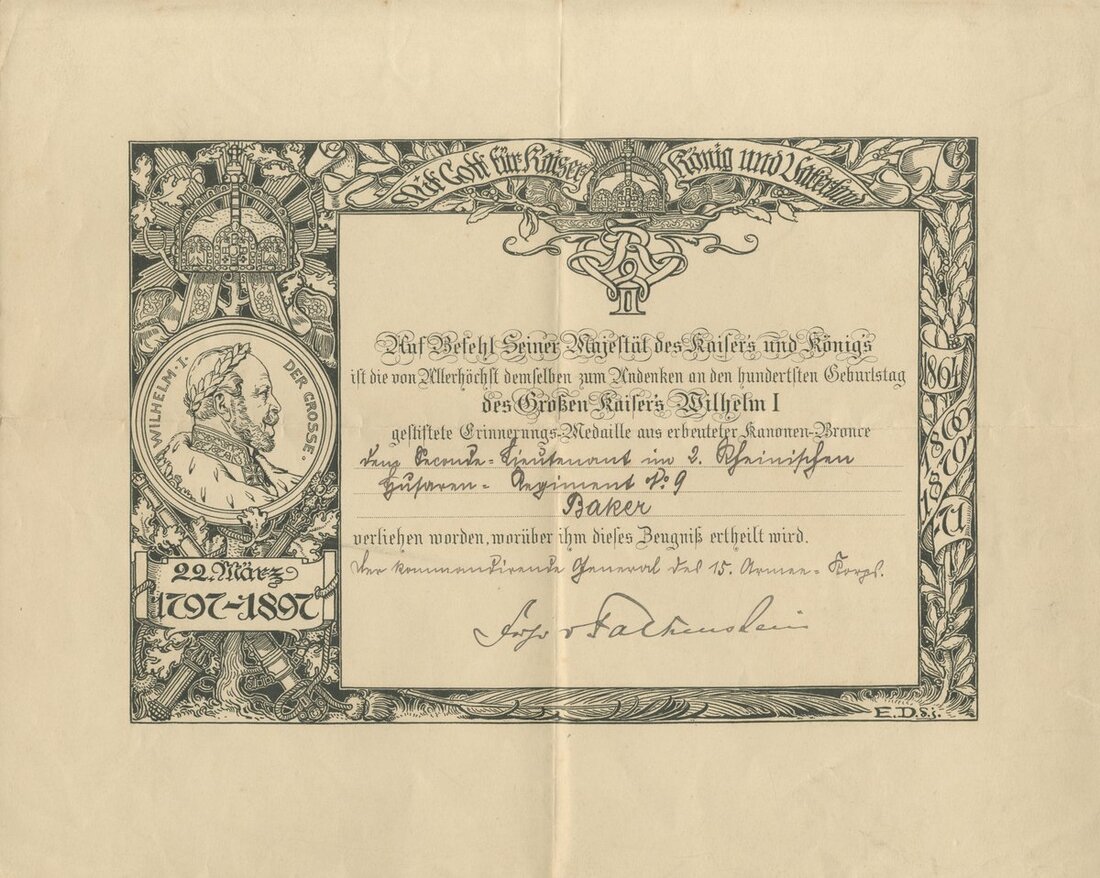 Mit Gott für Kaiser König und Vaterland
WILHELM · I · DER GROSSE ·
22. März
1797–1897
1864
1866
1870
71
W II
Auf Befehl Seiner Majestät des Kaisers und Königs
ist die von Allerhöchst demselben zum Andenken an den hundertsten Geburtstag
des Großen Kaisers Wilhelm I
gestiftete Erinnerungs-Medaille aus erbeuteter Kanonen-Bronce
dem Seconde-Lieutenant im 2. Rheinischen
Husaren-Regiment No 9
Baker
verliehen worden, worüber ihm dieses Zeugniß ertheilt wird.
Der kommandirende General des 15. Armee-Korps.
Frhr v Falkenstein
E. D. d. j.